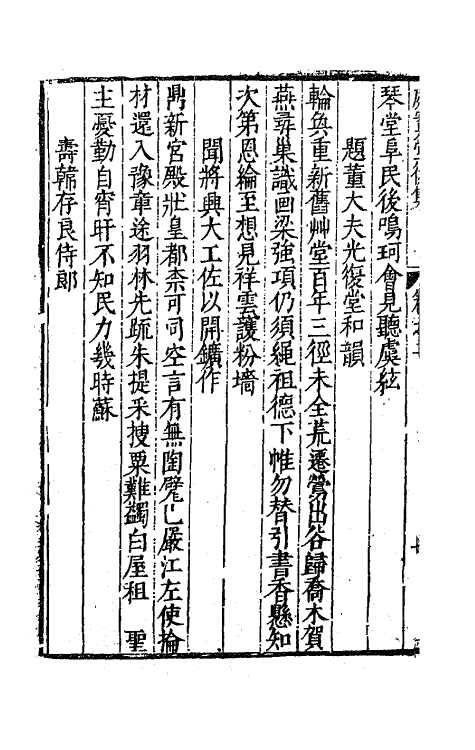 琴堂阜民後鳴珂會見聽虞絃
題董大夫光復堂和韻
輪奐重新舊艸堂百年三徑未全荒遷鶯出谷歸喬木賀
燕尋巢識画梁強項仍須繩祖德下帷勿替引書香懸知
次第恩綸至想見祥雲護粉墻
聞將興大工佐以開鑛作
鼎新宮殿壯皇都柰可司空言有無閩甓已嚴江左使掄
材還入豫章途羽林先疏朱提采搜粟難蠲白屋租 聖
主憂勤自宵旰不知民力幾時蘇
壽韓存良侍郎